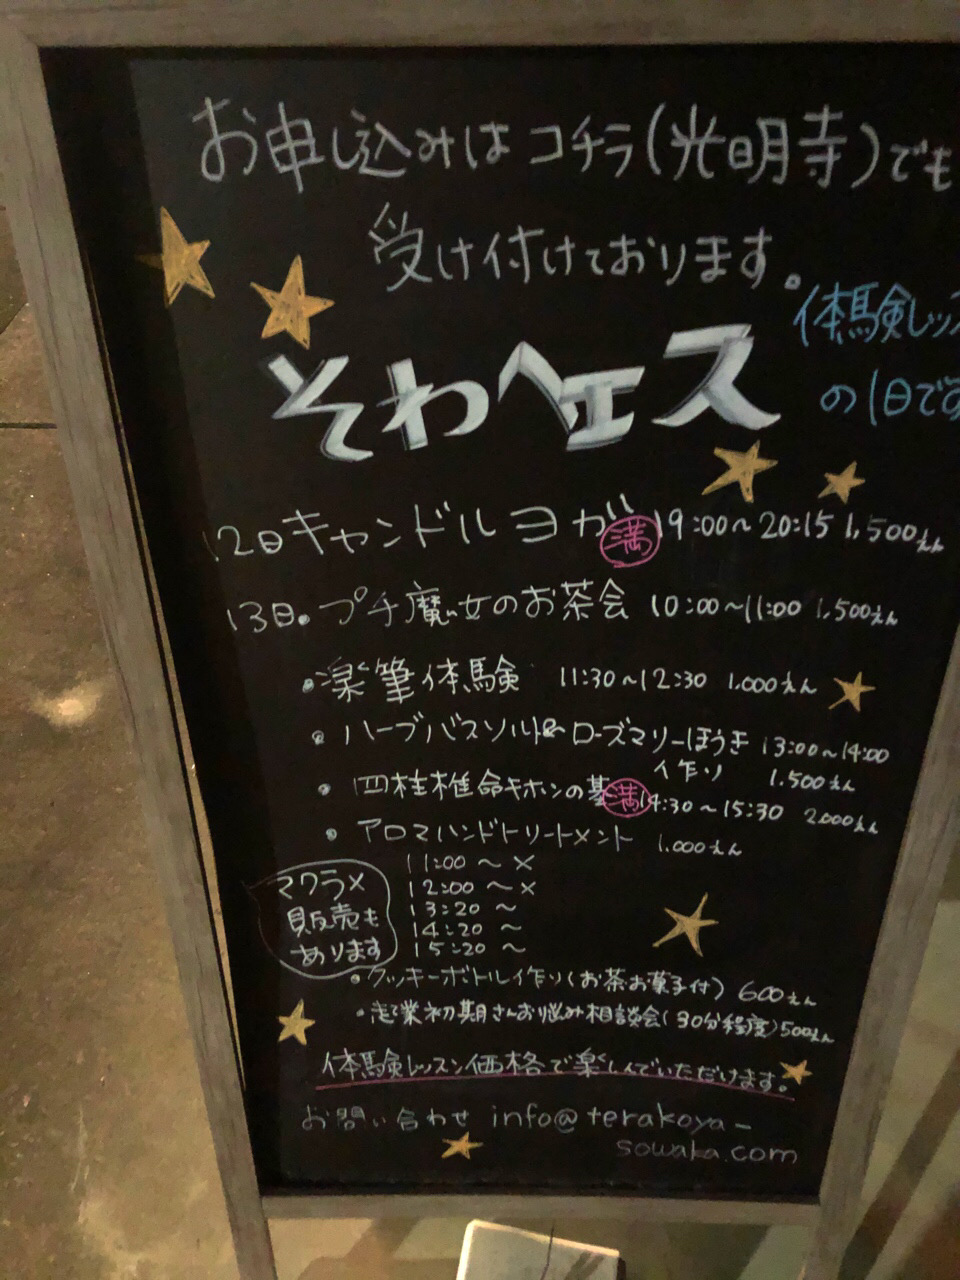 お申し込みはコチラ(光明寺)でも
受け付けております。
体験レッス
の1日です
そわフェス
12日キャンドルヨガ 満 19:00～20:15 1,500えん
13日・プチ魔女のお茶会 10:00～11:00 1,500えん
・楽筆体験 11:30～12:30 1,000えん
・ハーブバスソルト&ローズマリーほうき作り 13:00～14:00
1,500えん
・四柱推命キホンの基 満 14:30～15:30 2,000えん
・アロマハンドトリートメント 1,000えん
11:00～×
12:00～×
13:20～
14:20～
15:20～
マクラメ
販売も
あります
・クッキーボトル作り(お茶お菓子付) 600えん
・起業初期さんお悩み相談会(30分程度) 500えん
体験レッスン価格で楽しんでいただけます。
お問い合わせ info@terakoya-
sowaka.com